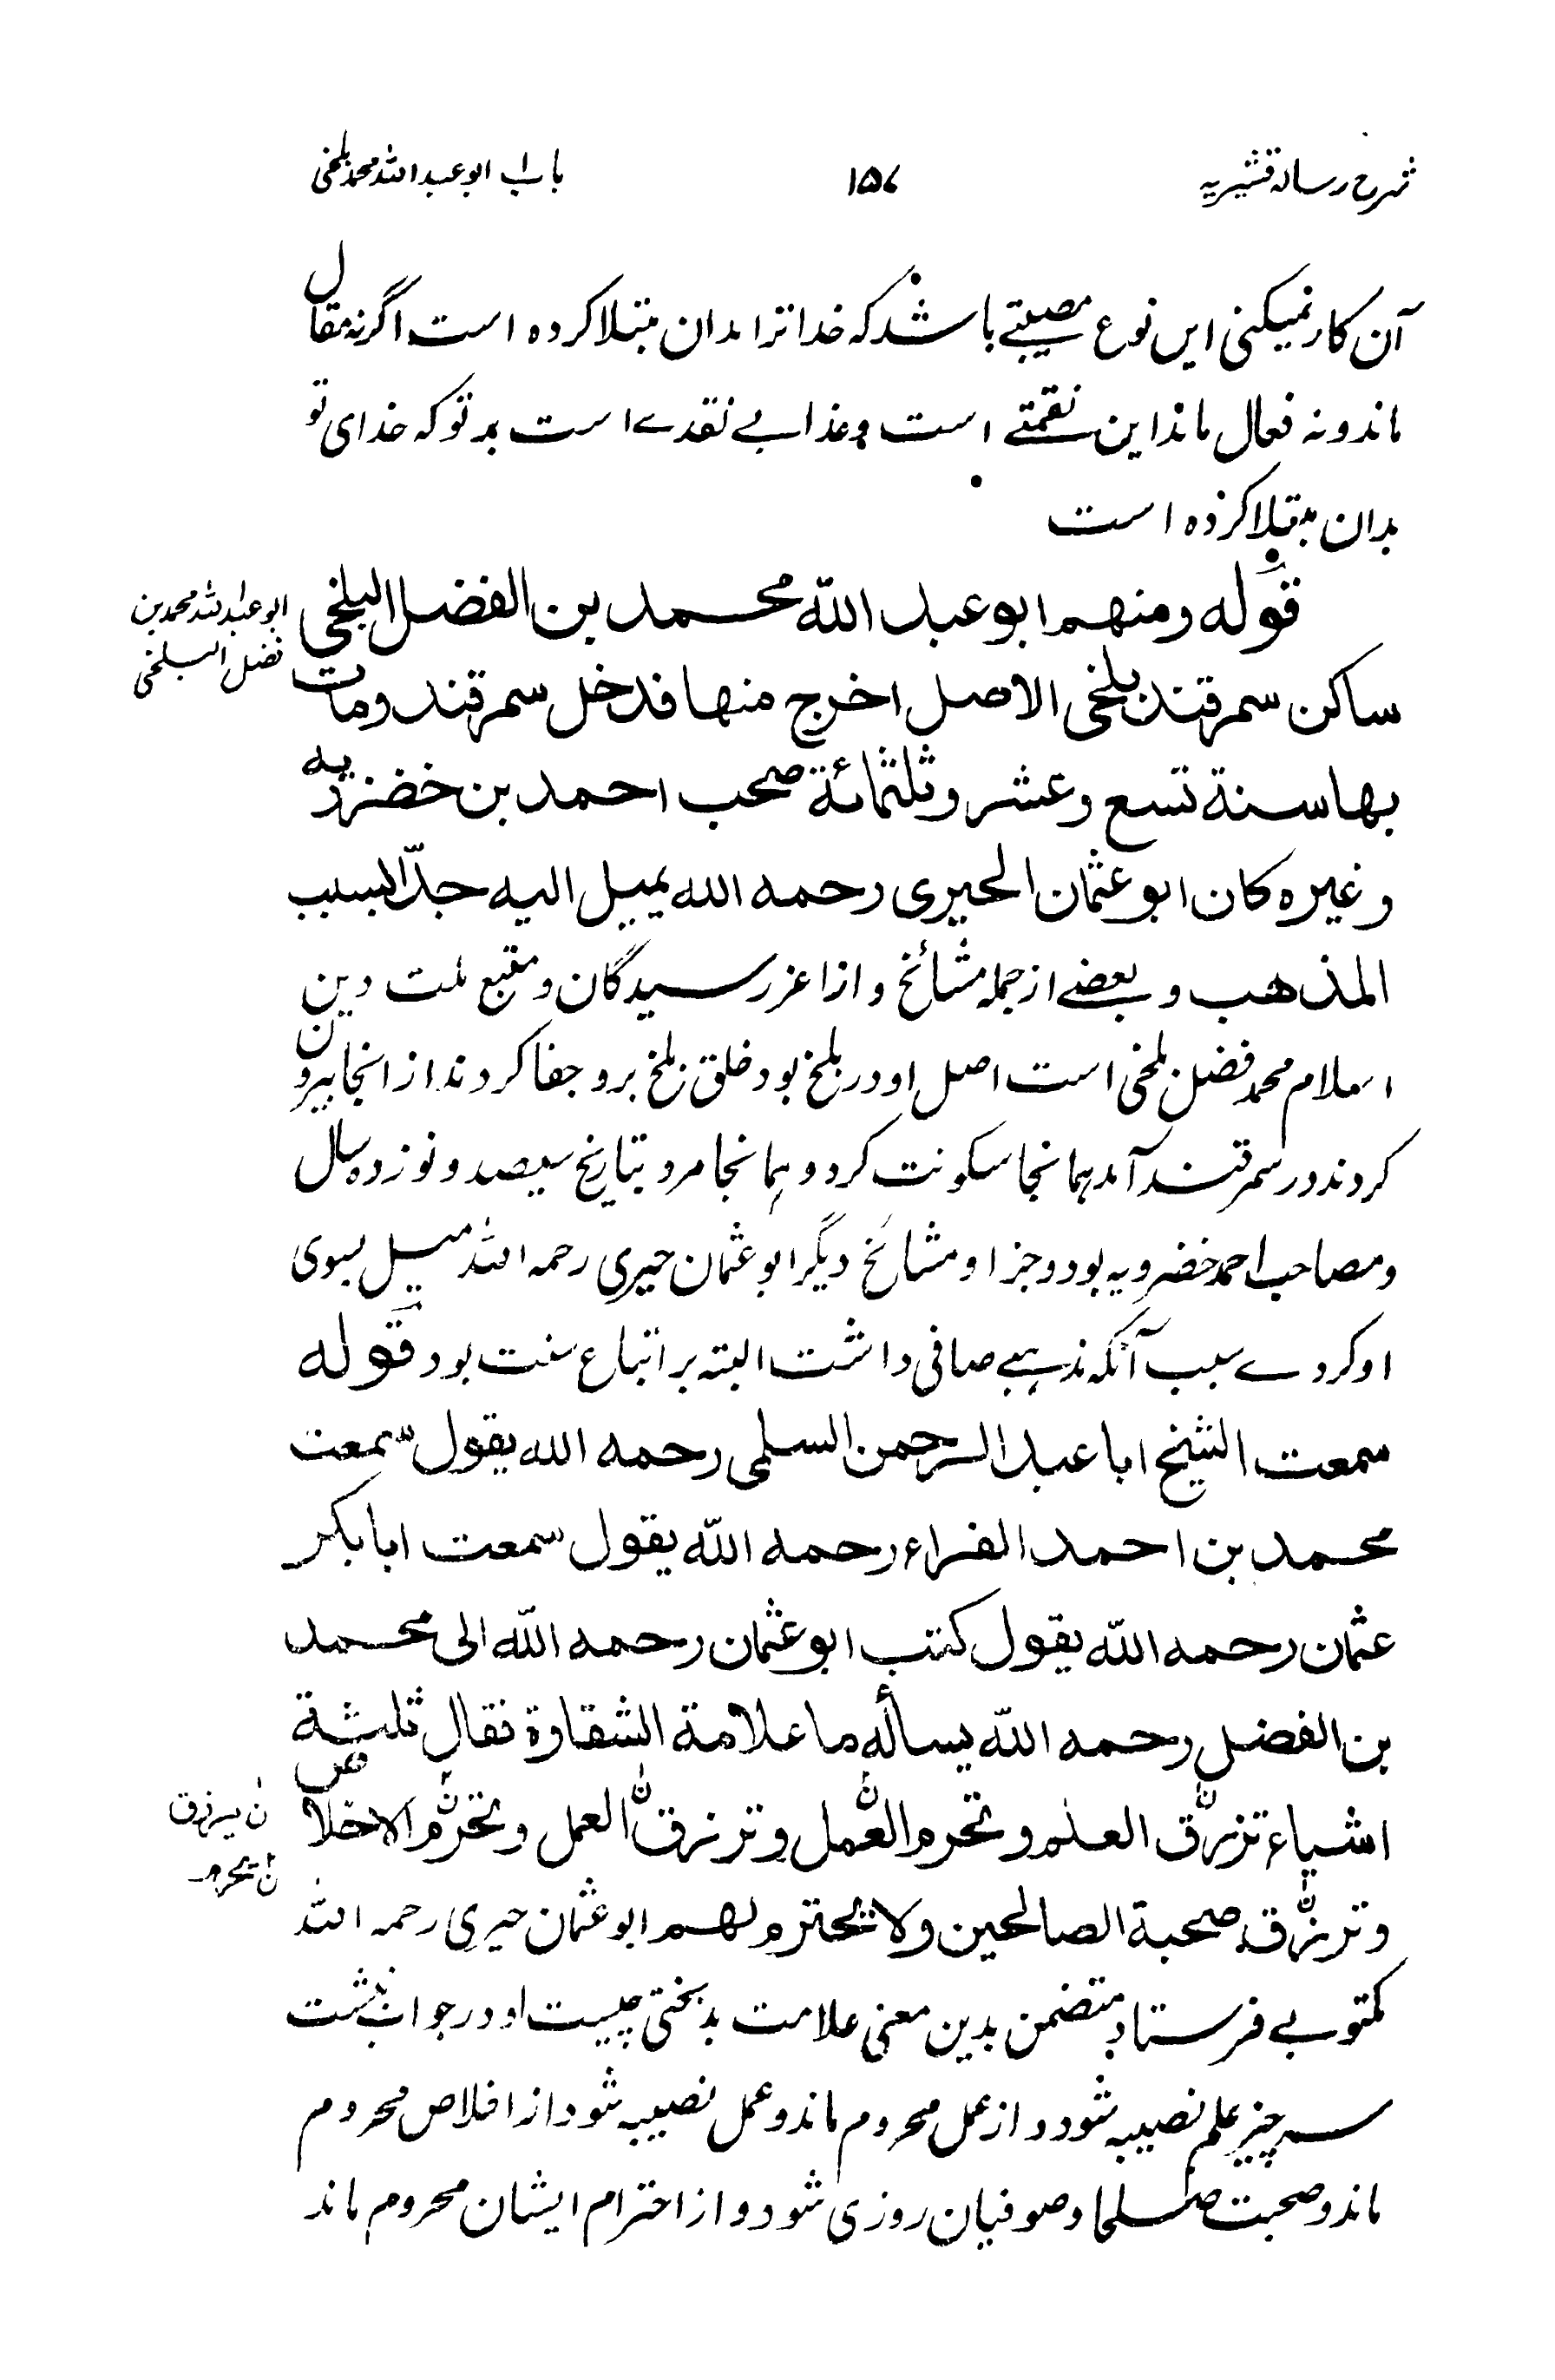 شرح رسالہ قشیریہ
۱۵۷
باب ابو عبد اللہ محمد بلخی
آن کار نمیکنی این نوع مصیبتے باشد کہ خدا ترا بدان مبتلا کردہ است اگر نہ مقال
ماند و نہ فعال ماند این نقمتے است و عذابے نقدے است بر تو کہ خدای تو
بدان مبتلا کردہ است
قولہ ومنهم ابو عبد اللّٰہ محمد بن الفضل البلخی
ابو عبد اللہ محمد بن
فضل البلخی
ساکن سمرقند بلخی الاصل اخرج منها فدخل سمرقند ومات
بها سنة تسع وعشر وثلثمائة صحب احمد بن خضرویه
وغیره کان ابو عثمان الحیری رحمه الله یمیل الیه جدّا لسبب
المذهب و بعضے از جملہ مشائخ و از اعز رسیدگان و متبع ملت دین
اسلام محمد فضل بلخی است اصل او در بلخ بود خلق بلخ برو جفا کردند از انجا بیرون
کردند در سمرقند آمد ہمانجا سکونت کرد و ہمانجا مرد بتاریخ سیصد و نوزدہ سال
و مصاحب احمد خضرویہ بود و جز او مشائخ دیگر ابو عثمان حیری رحمہ اللہ میل بسوی
او کردے سبب آنکہ مذہبے صافی داشت البتہ بر اتباع سنت بود قولہ
سمعت الشیخ ابا عبد الرحمن السلمی رحمه الله یقول سمعت
محمد بن احمد الفراء رحمه اللّٰه یقول سمعت ابا بکر
عثمان رحمه اللّٰه یقول کتب ابو عثمان رحمه اللّٰه الی محمد
بن الفضل رحمه اللّٰه یسأله ما علامة الشقاوة فقال ثلثة
اشیاء ترزق العلم و تحرم العمل و ترزق العمل و تحرم الاخلاص
ن یرزق
ن یحرم
و ترزق صحبة الصالحین ولا تحترم لهم ابو عثمان حیری رحمہ اللہ
مکتوبے فرستاد متضمن بدین معنی علامت بدبختی چیست او در جواب نبشت
سہ چیز علم نصیبہ شود و از عمل محروم ماند و عمل نصیبہ شود از اخلاص محروم
ماند و صحبت صلحا و صوفیان روزی شود و از احترام ایشان محروم ماند